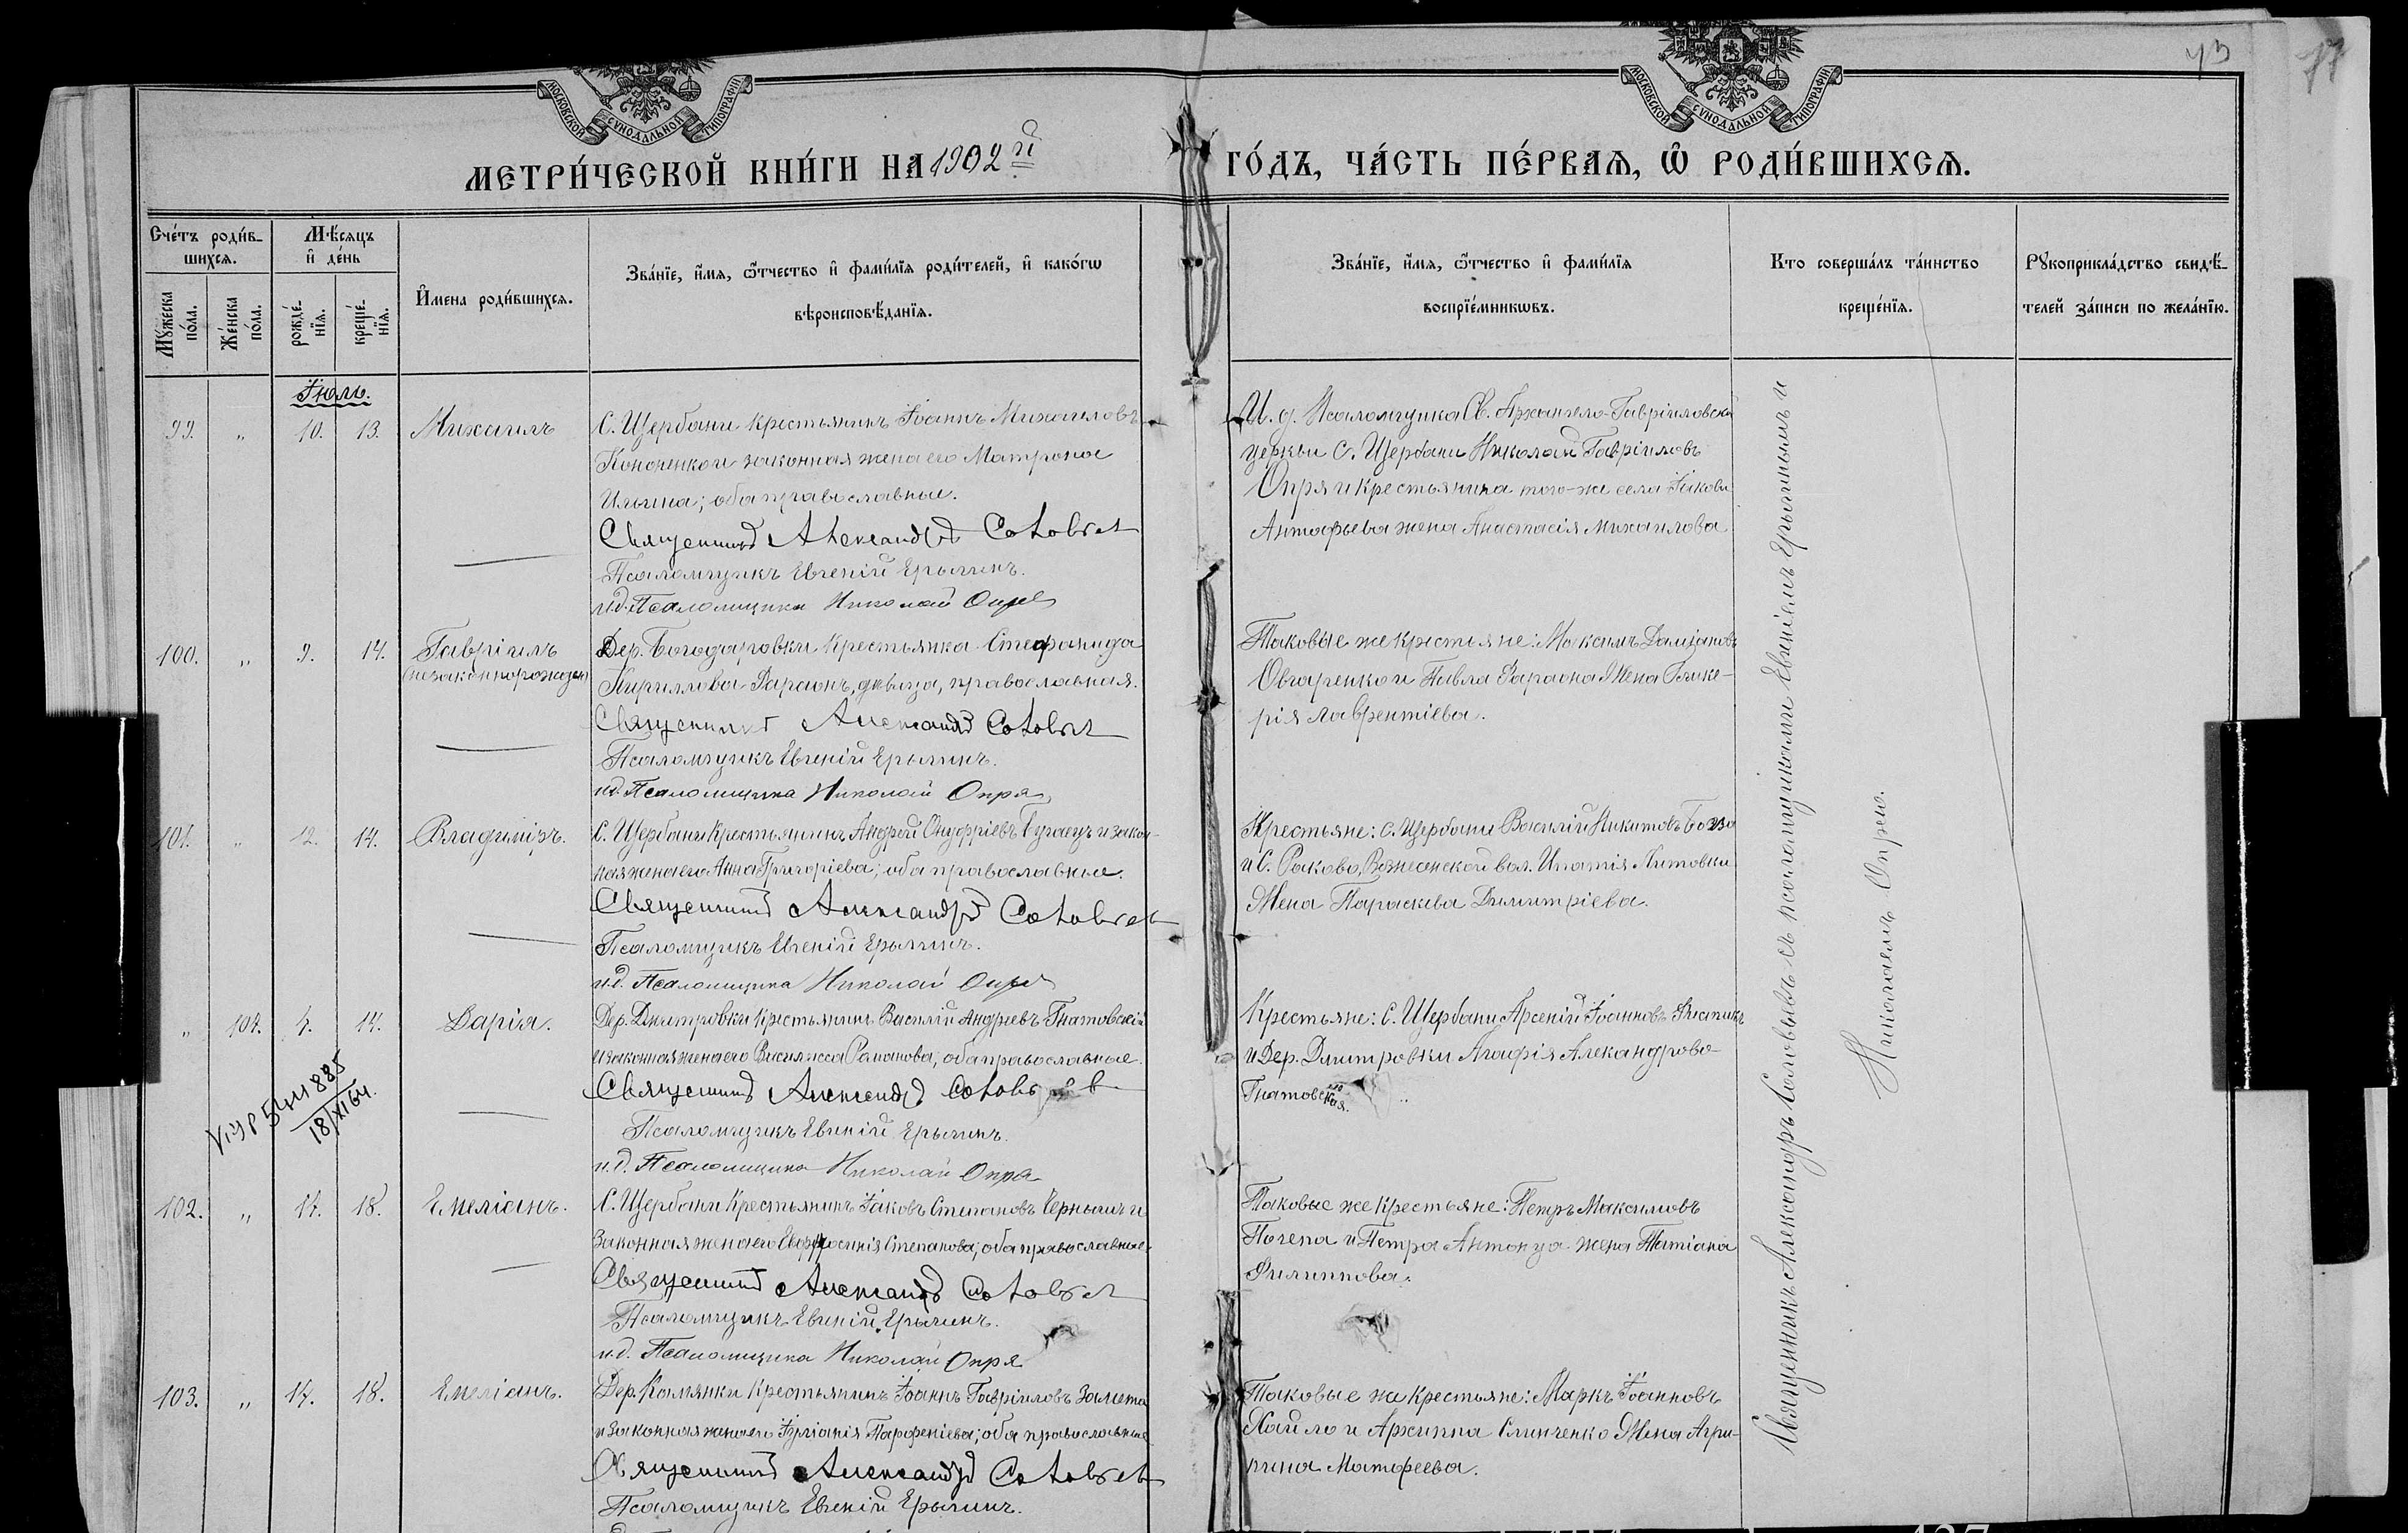 МОСКОВСКОЙ СѴНОДАЛЬНОЙ ТИПОГРАФІИ
МОСКОВСКОЙ СѴНОДАЛЬНОЙ ТИПОГРАФІИ
43
77
МЕТРИ́ЧЕСКОЙ КНИ́ГИ НА 1902 й
ГО́ДЪ, ЧА́СТЬ ПЕ́РВАѦ, Ѡ РОДИ́ВШИХСѦ.
Сче́тъ роди́в-
шихсѧ.
Мѣ́сяцъ
и҆ де́нь
Мꙋ́жеска
по́ла.
Же́нска
по́ла.
рожде́-
нїѧ.
креще́-
нїѧ.
И҆мена роди́вшихсѧ.
Зва́нїе, и҆́мѧ, ѻ҆́тчество и҆ фами́лїѧ роди́телей, и҆ како́гѡ
вѣроисповѣ́данїѧ.
Зва́нїе, и҆́мѧ, ѻ҆́тчество и҆ фами́лїѧ
воспрїе́мникѡвъ.
Кто соверша́лъ та́инство
креще́нїѧ.
Рꙋкоприкла́дство свидѣ́-
телей за́писи по жела́нїю.
Іюль.
99. „ 10. 13. Михаилъ
С. Щербани крестьянинъ Іоаннъ Михаиловъ
Кононенко и законная жена его Матрона
Ильина; оба православные.
Священникъ Александръ Соловьевъ
Псаломщикъ Евгеній Ерыгинъ.
и.д. Псаломщика Николай Опря
И. д. Псаломщика Св. Архангело-Гавріиловской
церкви С. Щербани Николай Гавріиловъ
Опря и крестьянина того-же села Іакова
Антофьева жена Анастасія Михаилова
100. „ 9. 14. Гавріилъ
(незаконнорожден)
Дер. Богодаровки крестьянка Стефанида
Кириллова Фараонъ, девица, православная.
Священникъ Александръ Соловьевъ
Псаломщикъ Евгеній Ерыгинъ.
и.д. Псаломщика Николай Опря
Таковые же крестьяне: Максимъ Даміановъ
Овчаренко и Павла Фараона жена Глике-
рія Лаврентіева.
101. „ 12. 14. Владиміръ.
С. Щербани крестьянинъ Андрей Онуфріевъ Бугаецъ и закон-
ная жена его Анна Григоріева; оба православные.
Священникъ Александръ Соловьевъ
Псаломщикъ Евгеній Ерыгинъ.
и.д. Псаломщика Николай Опря
Крестьяне: С. Щербани Василій Никитовъ
и С. Раково, Вознесенской вол. Ипатія Литовки
жена Параскева Димитріева.
„ 107. 4. 14. Дарія.
Дер. Дмитровки крестьянинъ Василій Андреевъ Гнатовскій
и законная жена его Василисса Романова; оба православные.
Священникъ Александръ Соловьевъ
Псаломщикъ Евгеній Ерыгинъ.
и.д. Псаломщика Николай Опря
Крестьяне: С. Щербани Арсеній Іоанновъ
и Дер. Дмитровки Агафія Александрова
Гнатовская.
5411885
18/XI 64.
102. „ 17. 18. Емеліанъ.
С. Щербани крестьянинъ Іаковъ Степановъ Чернышъ и
законная жена его Евфросинія Степанова; оба православные.
Священникъ Александръ Соловьевъ
Псаломщикъ Евгеній Ерыгинъ.
и.д. Псаломщика Николай Опря
Таковые же крестьяне: Петръ Максимовъ
Почепа и Петра Антонца жена Татіана
Филиппова.
103. „ 17. 18. Емеліанъ.
Дер. Камянки крестьянинъ Іоаннъ Гавріиловъ Замета
и законная жена его Іуліанія Парфеніева; оба православные
Священникъ Александръ Соловьевъ
Псаломщикъ Евгеній Ерыгинъ.
Таковые же крестьяне: Маркъ Іоанновъ
Хайло и Архиппа Клинченко жена Агри-
пина Матфеева.
Священникъ Александръ Соловьевъ съ псаломщиками Евгеніемъ Ерыгинымъ и
Николаемъ Опрею.